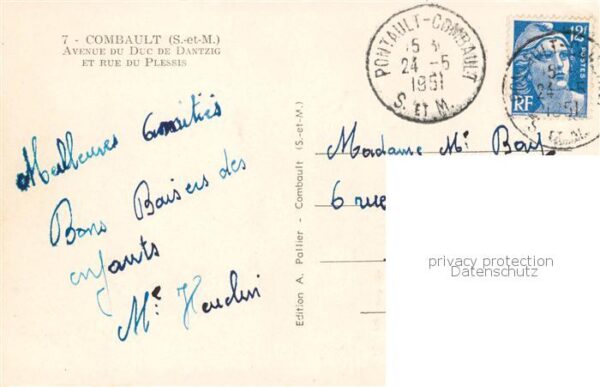 7 - COMBAULT (S.-et-M.)
AVENUE DU DUC DE DANTZIG
ET RUE DU PLESSIS
PONTAULT-COMBAULT
24 -5
1951
S. ET M.
12F
POSTES
RF
24 -5
1951
S. ET M.
Meilleures amitiés
Bons Baisers des
enfants
Me
Madame Me
6 rue
Edition A. Pallier - Combault (S.-et-M.)
privacy protection
Datenschutz